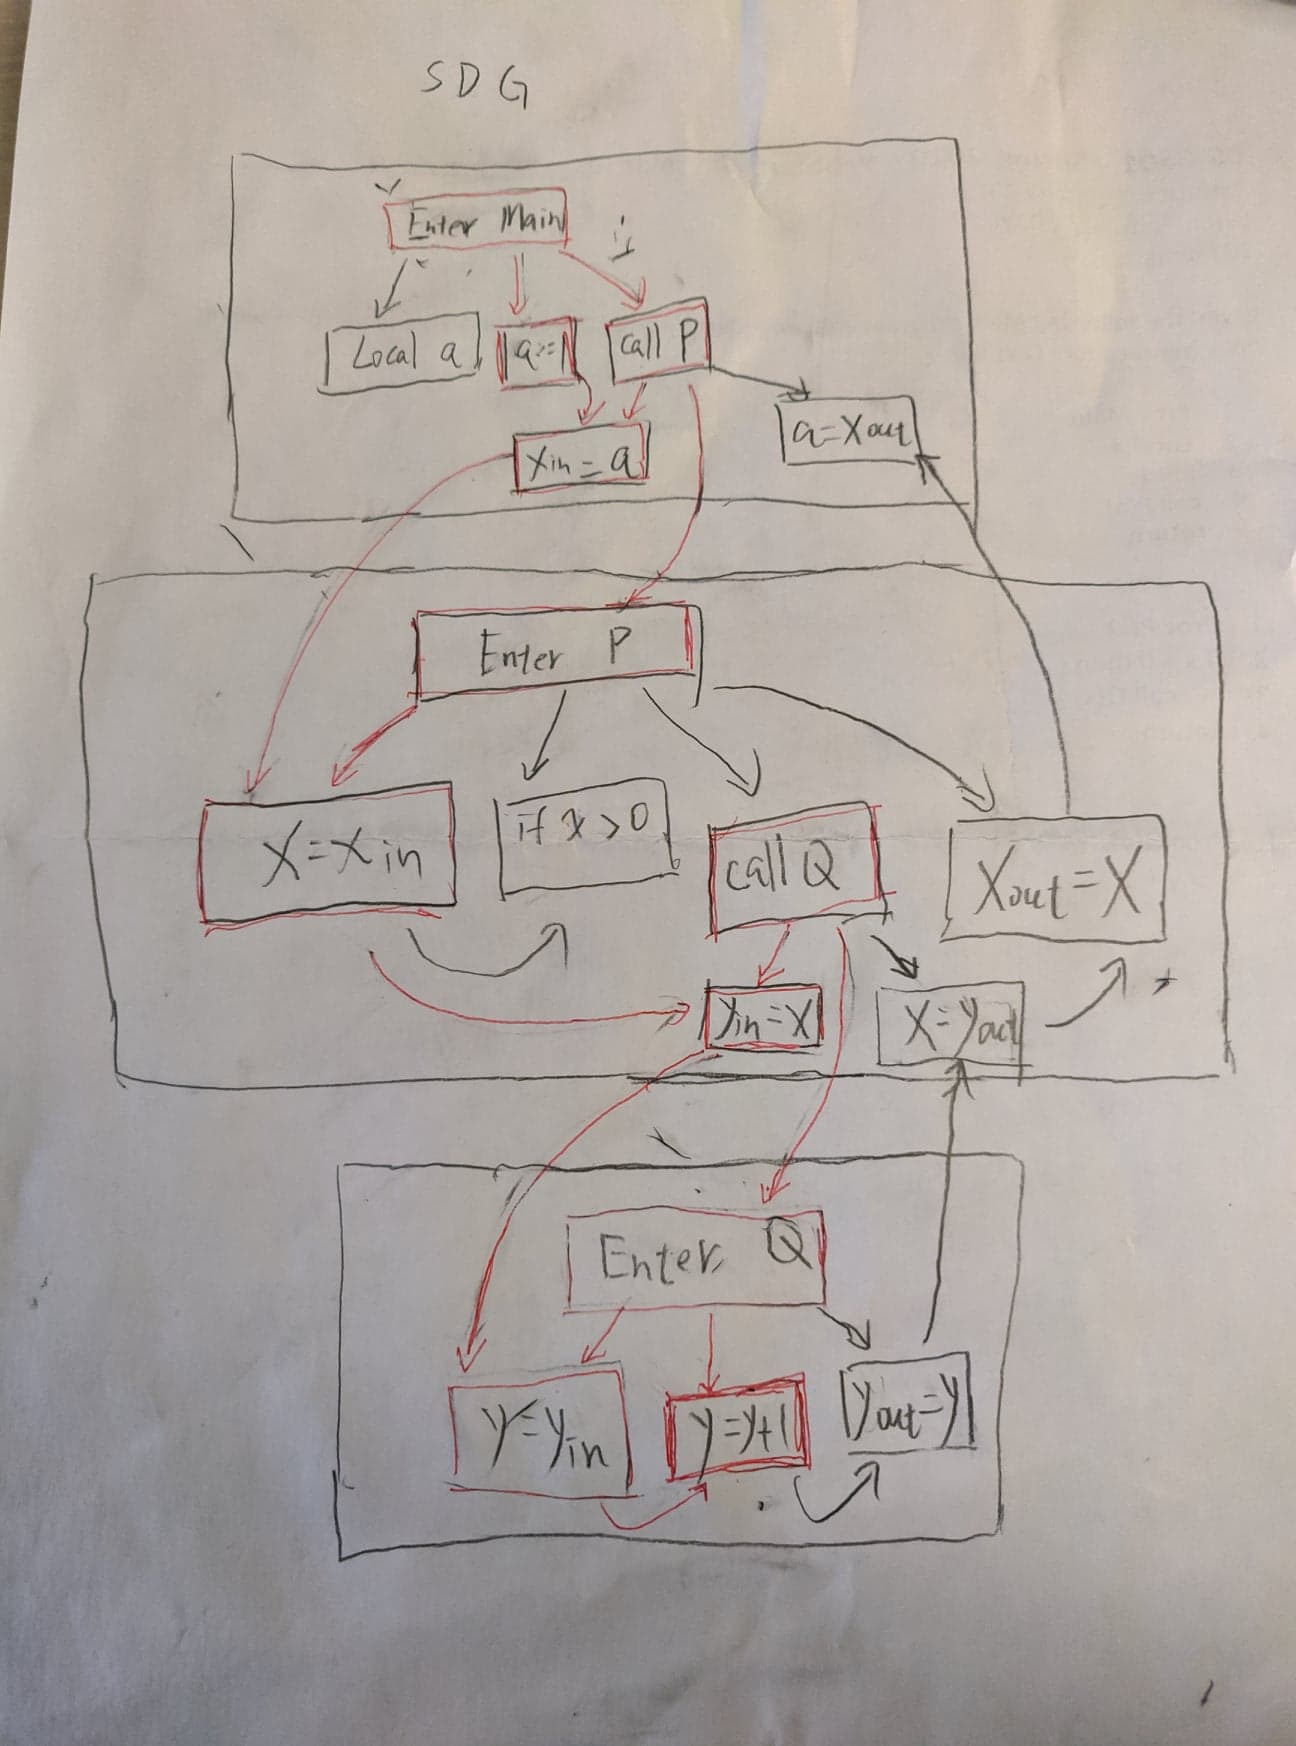 SDG
Enter Main
Local a
a=1
call P
Xin = a
a=Xout
Enter P
X=Xin
if x>0
call Q
Xout=X
yin=X
X=yout
Enter Q
y=yin
y=y+1
yout=y